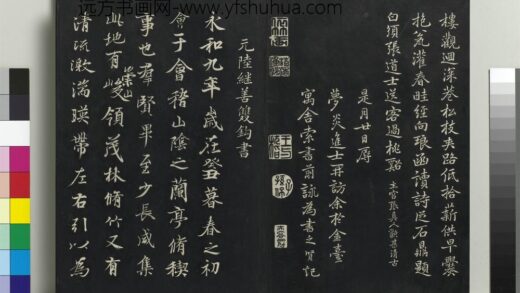 远方书画网-www.yfshuhua.com
樓觀迴深巷松枝夾路低拾薪供早爨
抱瓮灌春畦經向琅函讀詩從石鼎題
白須張道士送客過桃谿
是月廿日
夢炎進士再訪余於金臺
寓舍索書前詠為書之
元陸繼善雙鉤書
永和九年歲在癸暮春之初
會于會稽山陰之蘭亭脩稧
事也羣賢畢至少長咸集
此地有崇山峻領茂林脩竹又有
清流激湍暎帶左右引以為